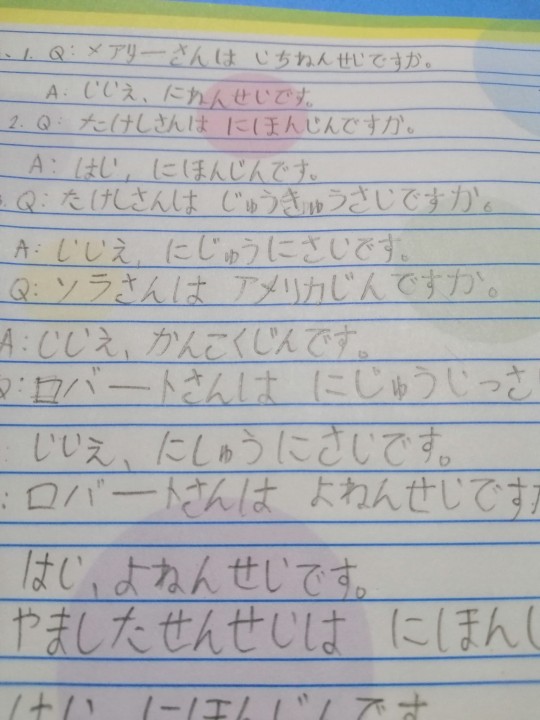 1. Q: メアリーさんは いちねんせいですか。
A: いいえ、にねんせいです。
2. Q: たけしさんは にほんじんですか。
A: はい, にほんじんです。
Q: たけしさんは じゅうきゅうさいですか。
A: いいえ, にじゅうにさいです。
Q: ソラさんは アメリカじんですか。
A: いいえ, かんこくじんです。
Q: ロバートさんは にじゅういっさ
いいえ、にしゅうにさいです。
: ロバートさんは よねんせいですか
はい, よねんせいです。
やましたせんせいは にほんし
はい、にほんじんです